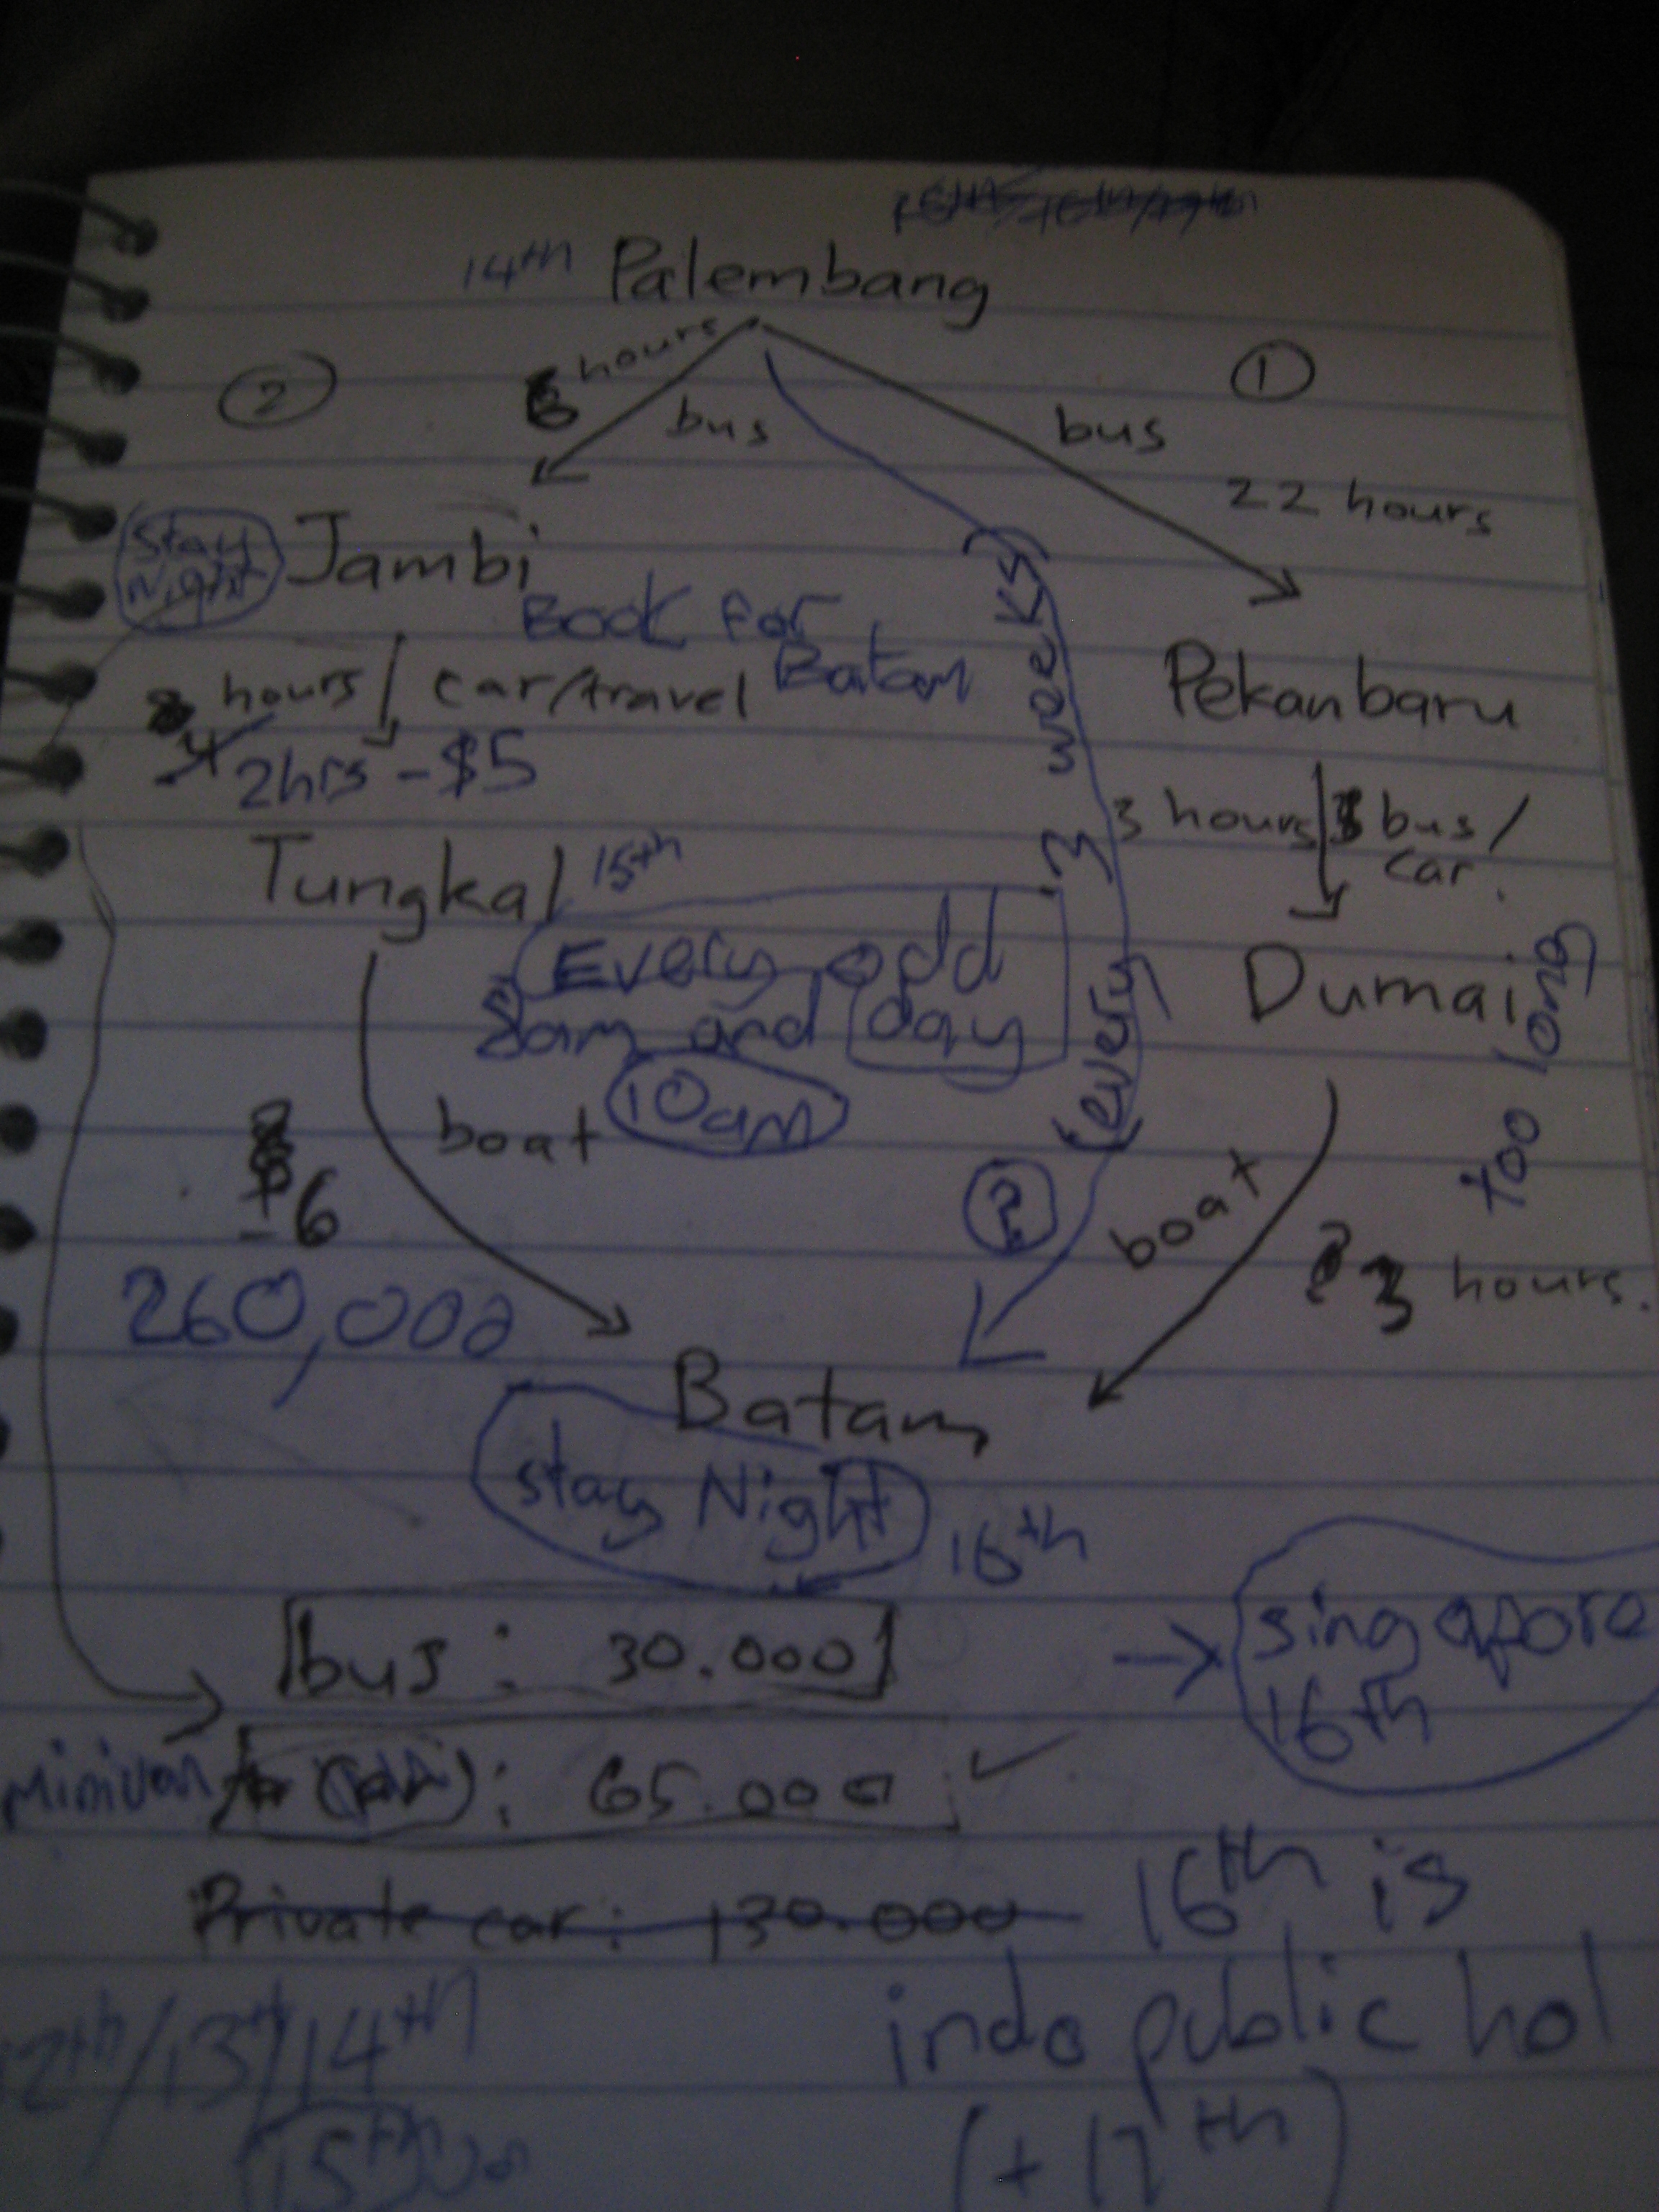 14th Palembang
2 hours 1
bus bus
22 hours
stay
Night Jambi
Book for
Batam
hours car/travel
2hrs - $5
Pekanbaru
(every 3 weeks)
3 hours bus/
car.
Tungkal 15th
Every odd
8am and day
10am
Dumai
too long
boat
6
260,000
?
boat
3 hours.
Batam
stay Night 16th
bus: 30.000
→ singapore
16th
Minivan : 65.000 ✓
Private car: 130.000
16th is
indo public hol
(+ 17th)
12th/13th/14th
15th